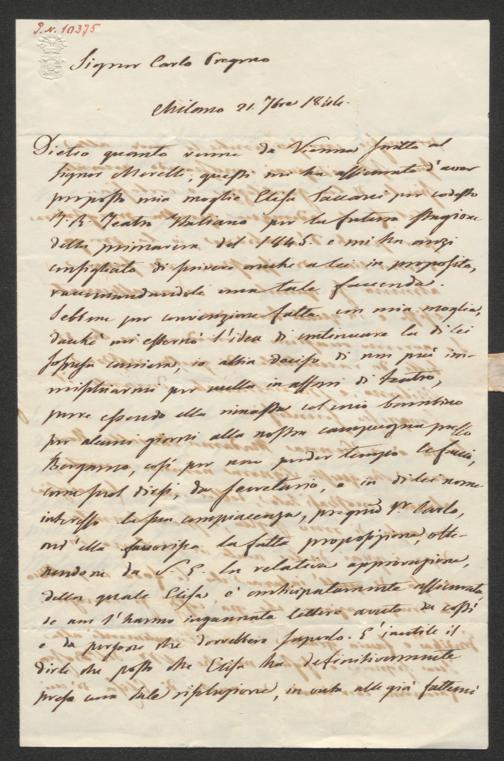 I.N. 10375
Signor Carlo
Milano 21. 7bre 1844.
Dietro quanto venne da Vienna scritto al
Signor Merelli, questi mi ha assicurato d'aver
proposto mia moglie Elisa Taccani per codesto
I. R. Teatro Italiano per la futura stagione
della primavera del 1845 e mi ha anzi
consigliato di scrivere anche a lei in proposito,
raccomandandole una tale faccenda.
Sebbene per convenzione fatta con mia moglie,
dacchè mi esternò l'idea di continuare la di lei
carriera, io abbia deciso di non più im-
mischiarmi per nulla in affari di teatro,
pure essendo ella rimasta col mio bambino
per alcuni giorni alla nostra campagna presso
Bergamo, così per non perder tempo le faccio,
come suol dirsi, da Secretario, e in di lei nome
interesso la sua compiacenza, pregmo Sr. Carlo,
ond'ella favorisca la fatta proposizione, otte-
nendone da S. E. la relativa approvazione,
della quale Elisa è anticipatamente assicurata,
se non l'hanno ingannata lettere avute da costì
e da persone che dovrebbero saperlo. È inutile il
dirle che posto che Elisa ha definitivamente
presa una tale risoluzione, in vista alle già fattemi